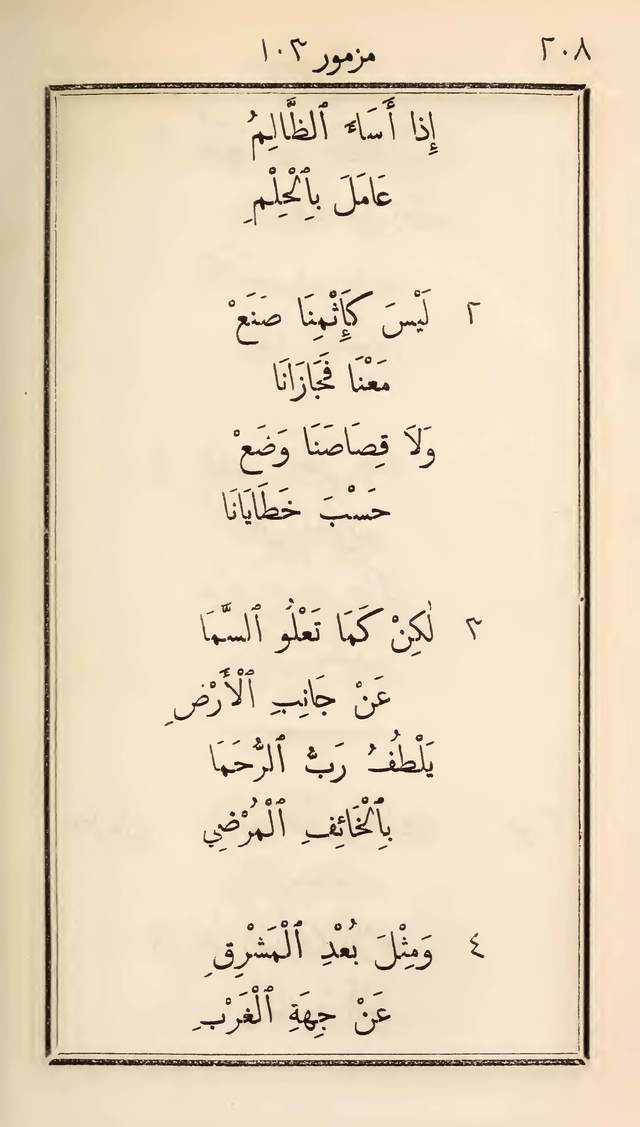 ٢٠٨ مزمور ١٠٣
إِذا أَسَاءَ ٱلظَّالِمُ
عَامَلَ بِٱلْحِلْمِ
٢ لَيْسَ كَإِثْمِنَا صَنَعْ
مَعْنَا فَجَازَانَا
وَلَا قِصَاصَنَا وَضَعْ
حَسْبَ خَطَايَانَا
٣ لٰكِنْ كَمَا تَعْلُو ٱلسَّمَا
عَنْ جَانِبِ ٱلْأَرْضِ
يَلْطُفُ رَبُّ ٱلرُّحَمَا
بِٱلْخَائِفِ ٱلْمُرْضِي
٤ وَمِثْلَ بُعْدِ ٱلْمَشْرِقِ
عَنْ جِهَةِ ٱلْغَرْبِ